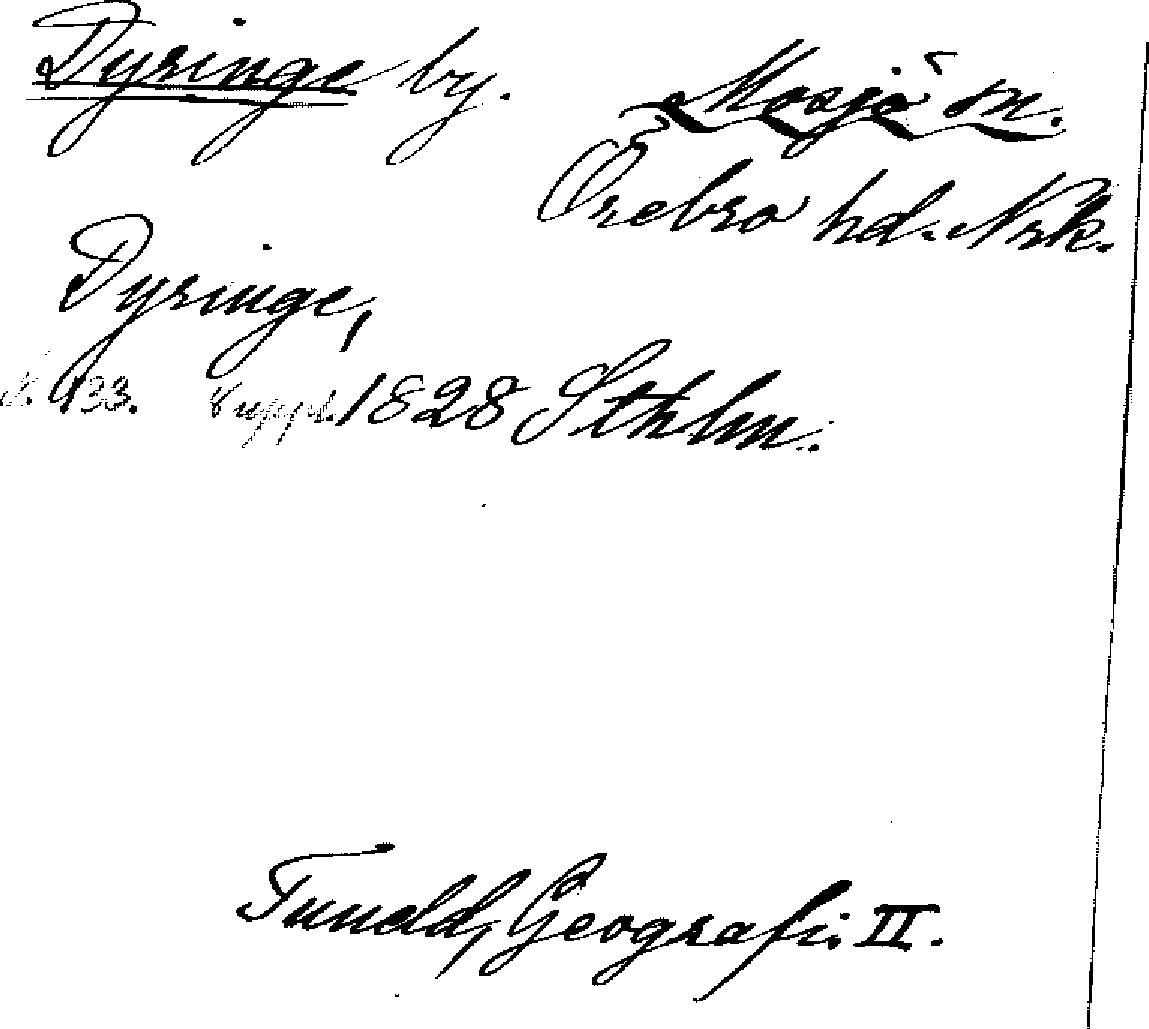 Dyringe by.
Mosjö sn.
Örebro hd. Nrk.
Dyringe,
s. 933. Suppl. 1828 Sthlm.
Tuneld, Geografi II.